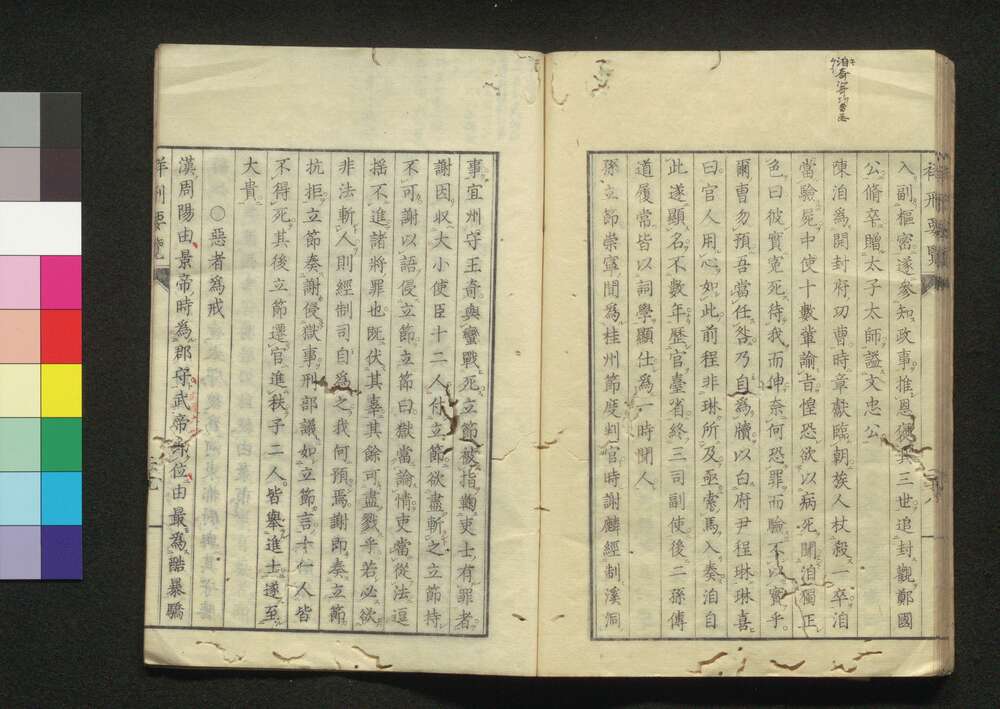 入副樞密遂參知政事推恩褒其三世追封觀鄭國
公脩卒贈太子太師謚文忠公
陳洎為開封府功曹時章獻臨朝族人杖殺一卒洎
當驗屍中使十數輩諭旨惶恐欲以病死聞洎獨正
色曰彼實冤死待我而伸奈何恐罪而驗不以實乎
爾曹勿預吾當任咎乃自為牘以白府尹程琳琳喜
曰官人用心如此前程非琳所及亟索馬入奏洎自
此遂顯名不數年歷官臺省終三司副使後二孫傅
道履常皆以詞學顯仕為一時聞人
孫立節崇寧間為桂州節度判官時謝麟經制溪洞
事宜州守王奇與蠻戰死立節被指鞫吏士有罪者
謝因収大小使臣十二人付立節欲盡斬之立節持
不可謝以語侵立節立節曰獄當論情吏當從法逗
撓不進諸將罪也既伏其辜其餘可盡戮乎若必欲
非法斬人則經制司自為之我何預焉謝即奏立節
抗拒立節奏謝侵獄事刑部議如立節言十二人皆
不得死其後立節遷官進秩子二人皆舉進士遂至
大貴
○惡者為戒
漢周陽由景帝時為郡守武帝即位由最為酷暴驕
祥刑要覽